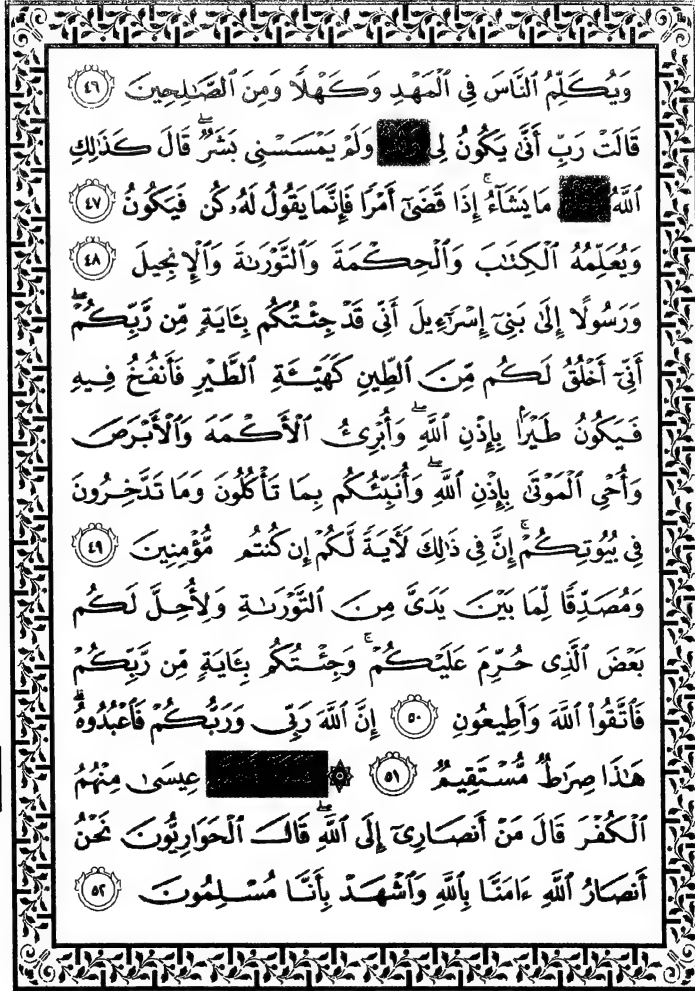 وَيُكَلِّمُ ٱلنَّاسَ فِى ٱلْمَهْدِ وَكَهْلًا وَمِنَ ٱلصَّٰلِحِينَ ٤٦
قَالَتْ رَبِّ أَنَّىٰ يَكُونُ لِى وَلَمْ يَمْسَسْنِى بَشَرٌ ۖ قَالَ كَذَٰلِكِ
ٱللَّهُ مَا يَشَآءُ ۚ إِذَا قَضَىٰٓ أَمْرًا فَإِنَّمَا يَقُولُ لَهُۥ كُن فَيَكُونُ ٤٧
وَيُعَلِّمُهُ ٱلْكِتَٰبَ وَٱلْحِكْمَةَ وَٱلتَّوْرَىٰةَ وَٱلْإِنجِيلَ ٤٨
وَرَسُولًا إِلَىٰ بَنِىٓ إِسْرَٰٓءِيلَ أَنِّى قَدْ جِئْتُكُم بِـَٔايَةٍ مِّن رَّبِّكُمْ ۖ
أَنِّىٓ أَخْلُقُ لَكُم مِّنَ ٱلطِّينِ كَهَيْـَٔةِ ٱلطَّيْرِ فَأَنفُخُ فِيهِ
فَيَكُونُ طَيْرًۢا بِإِذْنِ ٱللَّهِ ۖ وَأُبْرِئُ ٱلْأَكْمَهَ وَٱلْأَبْرَصَ
وَأُحْىِ ٱلْمَوْتَىٰ بِإِذْنِ ٱللَّهِ ۖ وَأُنَبِّئُكُم بِمَا تَأْكُلُونَ وَمَا تَدَّخِرُونَ
فِى بُيُوتِكُمْ ۚ إِنَّ فِى ذَٰلِكَ لَـَٔايَةً لَّكُمْ إِن كُنتُم مُّؤْمِنِينَ ٤٩
وَمُصَدِّقًا لِّمَا بَيْنَ يَدَىَّ مِنَ ٱلتَّوْرَىٰةِ وَلِأُحِلَّ لَكُم
بَعْضَ ٱلَّذِى حُرِّمَ عَلَيْكُمْ ۚ وَجِئْتُكُم بِـَٔايَةٍ مِّن رَّبِّكُمْ
فَٱتَّقُوا۟ ٱللَّهَ وَأَطِيعُونِ ٥٠ إِنَّ ٱللَّهَ رَبِّى وَرَبُّكُمْ فَٱعْبُدُوهُ ۗ
هَٰذَا صِرَٰطٌ مُّسْتَقِيمٌ ٥١ ۞ عِيسَىٰ مِنْهُمُ
ٱلْكُفْرَ قَالَ مَنْ أَنصَارِىٓ إِلَى ٱللَّهِ ۖ قَالَ ٱلْحَوَارِيُّونَ نَحْنُ
أَنصَارُ ٱللَّهِ ءَامَنَّا بِٱللَّهِ وَٱشْهَدْ بِأَنَّا مُسْلِمُونَ ٥٢